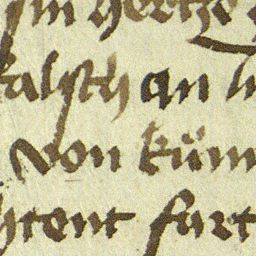 sin hertze
falsch an
von kün
tent fart